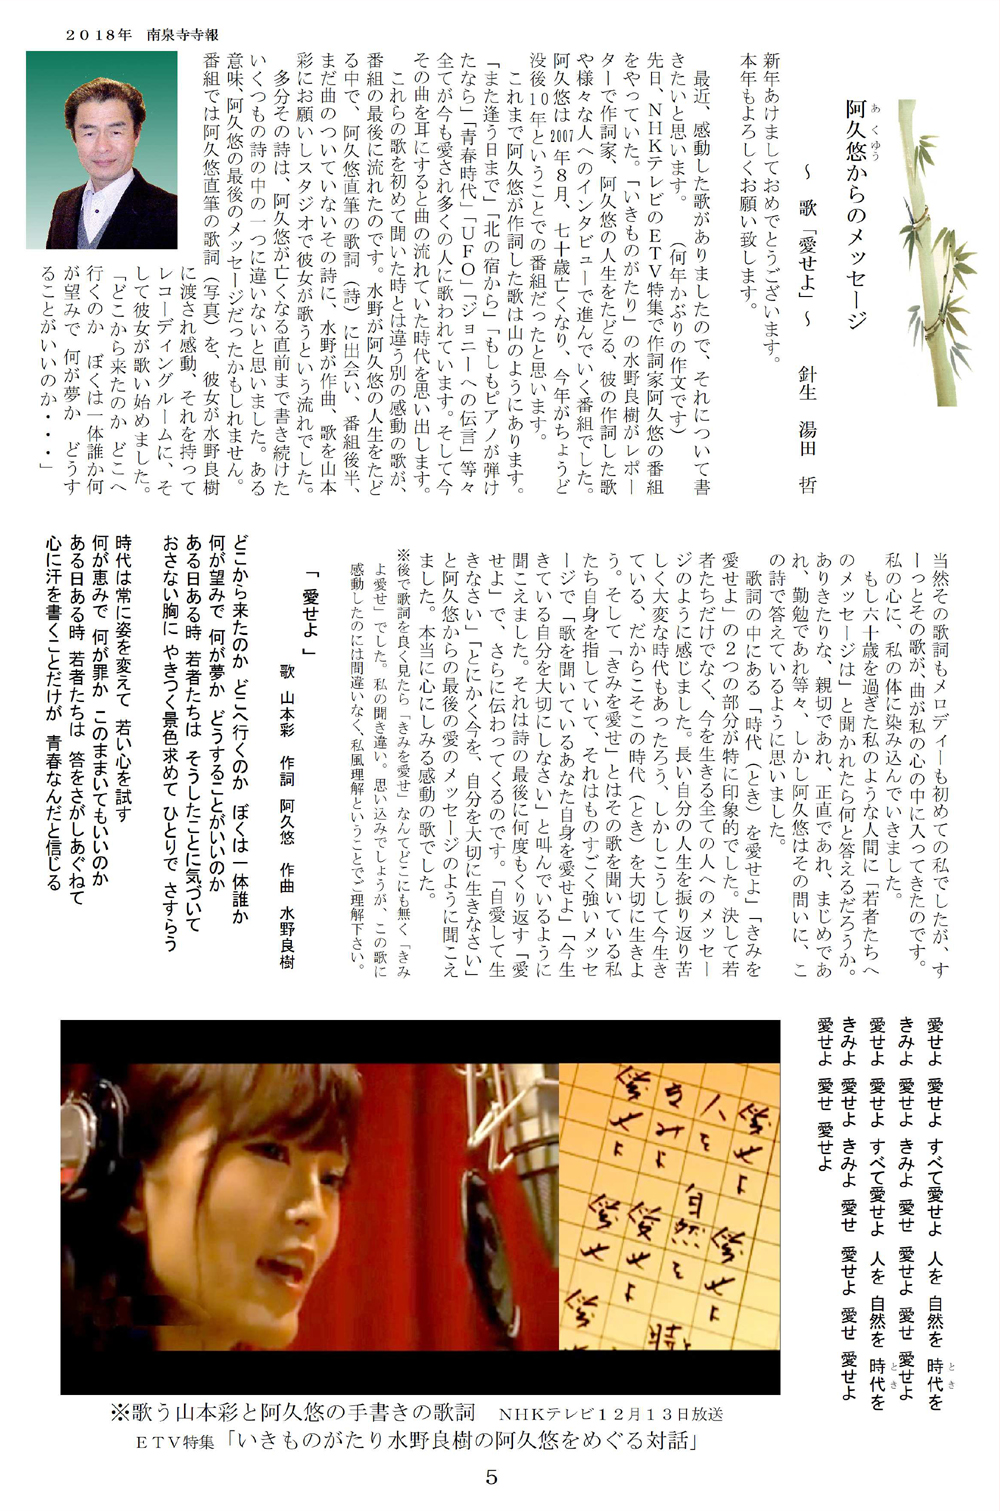 2018年　南泉寺寺報
阿久悠からのメッセージ
あくゆう
～　歌「愛せよ」～　　針生　湯田　哲
新年あけましておめでとうございます。
本年もよろしくお願い致します。
最近、感動した歌がありましたので、それについて書
きたいと思います。　（何年かぶりの作文です）
先日、NHKテレビのETV特集で作詞家阿久悠の番組
をやっていた。「いきものがたり」の水野良樹がレポー
ターで作詞家、阿久悠の人生をたどる、彼の作詞した歌
や様々な人へのインタビューで進んでいく番組でした。
阿久悠は2007年8月、七十歳亡くなり、今年がちょうど
没後10年ということでの番組だったと思います。
これまで阿久悠が作詞した歌は山のようにあります。
「また逢う日まで」「北の宿から」「もしもピアノが弾け
たなら」「青春時代」「UFO」「ジョニーへの伝言」等々
全てが今も愛され多くの人に歌われています。そして今
その曲を耳にすると曲の流れていた時代を思い出します。
これらの歌を初めて聞いた時とは違う別の感動の歌が、
番組の最後に流れたのです。水野が阿久悠の人生をたど
る中で、阿久悠直筆の歌詞（詩）に出会い、番組後半、
まだ曲のついていないその詩に、水野が作曲、歌を山本
彩にお願いしスタジオで彼女が歌うという流れでした。
多分その詩は、阿久悠が亡くなる直前まで書き続けた
いくつもの詩の中の一つに違いないと思いました。ある
意味、阿久悠の最後のメッセージだったかもしれません。
番組では阿久悠直筆の歌詞（写真）を、彼女が水野良樹
に渡され感動、それを持って
レコーディングルームに、そ
して彼女が歌い始めました。
「どこから来たのか どこへ
行くのか　ぼくは一体誰か何
が望みで　何が夢か　どうす
ることがいいのか・・・」
当然その歌詞もメロディーも初めての私でしたが、す
ーっとその歌が、曲が私の心の中に入ってきたのです。
私の心に、私の体に染み込んでいきました。
もし六十歳を過ぎた私のような人間に「若者たちへ
のメッセージは」と聞かれたら何と答えるだろうか。
ありきたりな、親切であれ、正直であれ、まじめであ
れ、勤勉であれ等々、しかし阿久悠はその問いに、こ
の詩で答えているように思いました。
歌詞の中にある「時代（とき）を愛せよ」「きみを
愛せよ」の２つの部分が特に印象的でした。決して若
者たちだけでなく、今を生きる全ての人へのメッセー
ジのように感じました。長い自分の人生を振り返り苦
しく大変な時代もあったろう、しかしこうして今生き
ている、だからこそこの時代（とき）を大切に生きよ
う。そして「きみを愛せ」とはその歌を聞いている私
たち自身を指していて、それはものすごく強いメッセ
ージで「歌を聞いているあなた自身を愛せよ」「今生
きている自分を大切にしなさい」と叫んでいるように
聞こえました。それは詩の最後に何度もくり返す「愛
せよ」で、さらに伝わってくるのです。「自愛して生
きなさい」「とにかく今を、自分を大切に生きなさい」
と阿久悠からの最後の愛のメッセージのように聞こえ
ました。本当に心にしみる感動の歌でした。
※後で歌詞を良く見たら「きみを愛せ」なんてどこにも無く「きみ
よ愛せ」でした。私の聞き違い。思い込みでしょうが、この歌に
感動したのには間違いなく、私風理解ということでご理解下さい。
「愛せよ」
歌　山本彩　作詞　阿久悠　作曲　水野良樹
どこから来たのか　どこへ行くのか　ぼくは一体誰か
何が望みで　何が夢か　どうすることがいいのか
ある日ある時　若者たちは　そうしたことに気づいて
おさない胸に　やきつく景色求めて　ひとりで　さすらう
時代は常に姿を変えて　若い心を試す
何が恵みで　何が罪か　このままいてもいいのか
ある日ある時　若者たちは　答をさがしあぐねて
心に汗を書くことだけが　青春なんだと信じる
愛せよ　愛せよ　すべて愛せよ　人を　自然を　時代を
とき
きみよ　愛せよ　きみよ　愛せ　愛せよ　愛せ　愛せよ
愛せよ　愛せよ　すべて愛せよ　人を　自然を　時代を
とき
きみよ　愛せよ　きみよ　愛せ　愛せよ　愛せ　愛せよ
愛せよ　愛せ　愛せよ
愛せよ
人を
自然を
愛せよ
きみよ
愛せよ
愛せよ
愛せ
愛
時
※歌う山本彩と阿久悠の手書きの歌詞　NHKテレビ12月13日放送
ETV特集「いきものがたり水野良樹の阿久悠をめぐる対話」
5